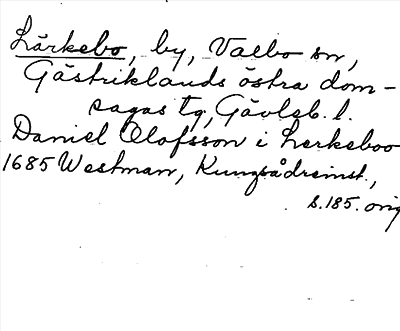 Lärkebo, by, Valbo sn,
Gästriklands östra dom-
sagas tg, Gävleb. l.
Daniel Olofsson i Lerkeboo
1685 Westman, Kungsådreinst.,
s. 185. orig